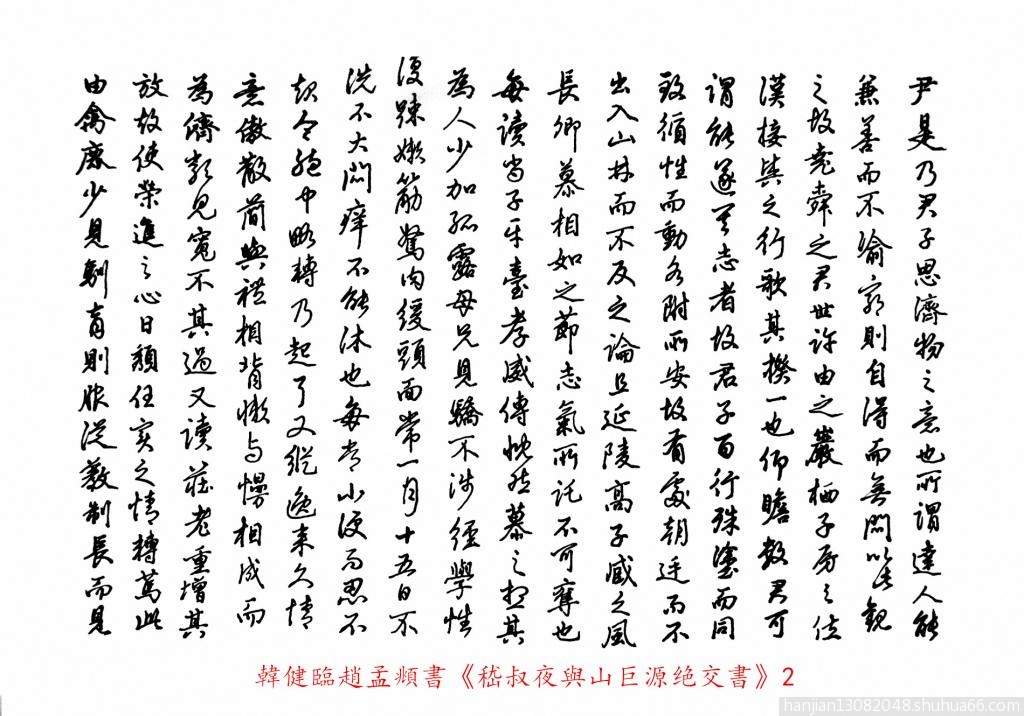 尹是乃君子思濟物之意也所謂達人能
兼善而不渝窮則自得而無悶以此觀
之故堯舜之君世許由之巖栖子房之佐
漢接輿之行歌其揆一也仰瞻數君可
謂能遂其志者故君子百行殊塗而同
致循性而動各附所安故有處朝廷而不
出入山林而不反之論且延陵高子臧之風
長卿慕相如之節志氣所託不可奪也
每讀尚子平臺孝威傳慨然慕之想其
為人少加孤露母兄見驕不涉經學性
復踈嬾筋駑肉緩頭面常一月十五日不
洗不大悶痒不能沐也每常小便而忍不
起令胞中略轉乃起耳又縱逸来久情
意傲散簡與禮相背懶与慢相成而
為儕類見寬不其過又讀莊老重增其
放故使榮進之心日頹任實之情轉篤此
由禽鹿少見馴育則服從教制長而見
韓健臨趙孟頫書《嵇叔夜與山巨源绝交書》2
hanjian13082048.shuhua66.com